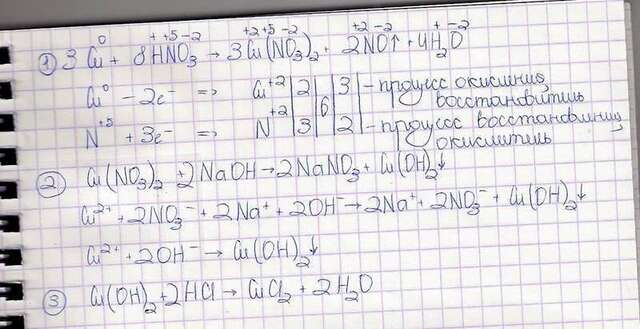 ① 3Cu⁰ + 8H⁺N⁺⁵O₃⁻² → 3Cu⁺²(N⁺⁵O₃⁻²)₂ + 2N⁺²O⁻²↑ + 4H₂⁺O⁻²
Cu⁰ - 2e⁻ => Cu⁺² | 2 | 6 | 3 | - процесс окисления, восстановитель
N⁺⁵ + 3e⁻ => N⁺² | 3 | | 2 | - процесс восстановления, окислитель
② Cu(NO₃)₂ + 2NaOH → 2NaNO₃ + Cu(OH)₂↓
Cu²⁺ + 2NO₃⁻ + 2Na⁺ + 2OH⁻ → 2Na⁺ + 2NO₃⁻ + Cu(OH)₂↓
Cu²⁺ + 2OH⁻ → Cu(OH)₂↓
③ Cu(OH)₂ + 2HCl → CuCl₂ + 2H₂O